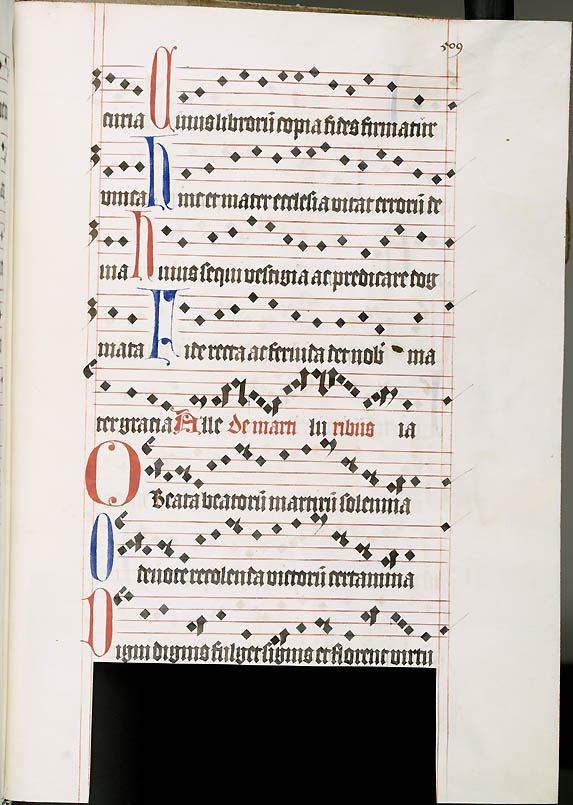 509
curia Cuius librorū copia fides firmatur
unica Hinc et mater ecclesia vitat errorū de
via Huius sequi vestigia ac predicare dog
mata Fide recta ac fervida det nob ma
ter gracia Alle De marti lu ribus ia
O Beata beatorū martirū solennia
O devote recolenda victorū certamina
Digni dignis fulget signis et florent virtu